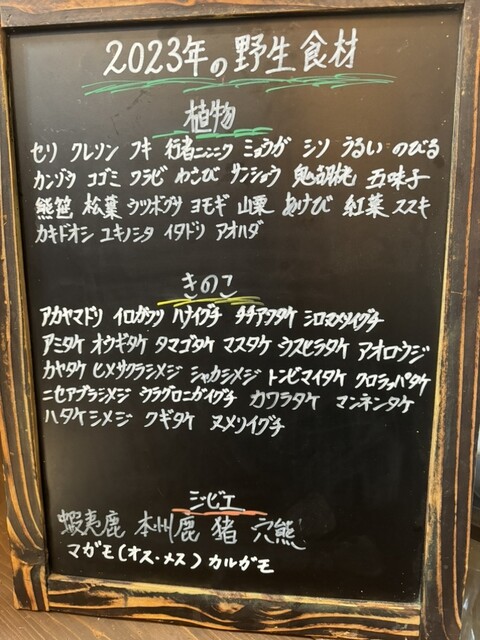 2023年の野生食材
植物
セリ クレソン フキ 行者ニンニク ミョウガ シソ うるい のびる
カンゾウ コゴミ ワラビ わさび サンショウ 鬼胡桃 五味子
熊笹 松葉 ウツボグサ ヨモギ 山栗 あけび 紅葉 ススキ
カキドオシ ユキノシタ イタドリ アオハダ
きのこ
アカヤマドリ イロガワリ ハナイグチ チチアワタケ シロヌメリイグチ
アミタケ オウギタケ タマゴタケ マスタケ ウスヒラタケ アオロウジ
カヤタケ ヒメサクラシメジ シャカシメジ トンビマイタケ クロラッパタケ
ニセアブラシメジ ウラグロニガイグチ カワラタケ マンネンタケ
ハタケシメジ クギタケ ヌメリイグチ
ジビエ
蝦夷鹿 本州鹿 猪 穴熊
マガモ(オス・メス) カルガモ